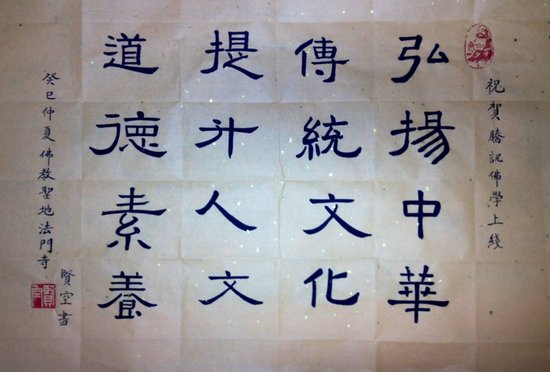 祝賀騰訊佛學上綫
弘揚中華
傳統文化
提升人文
道德素養
癸巳仲夏佛教聖地法門寺
賢空書